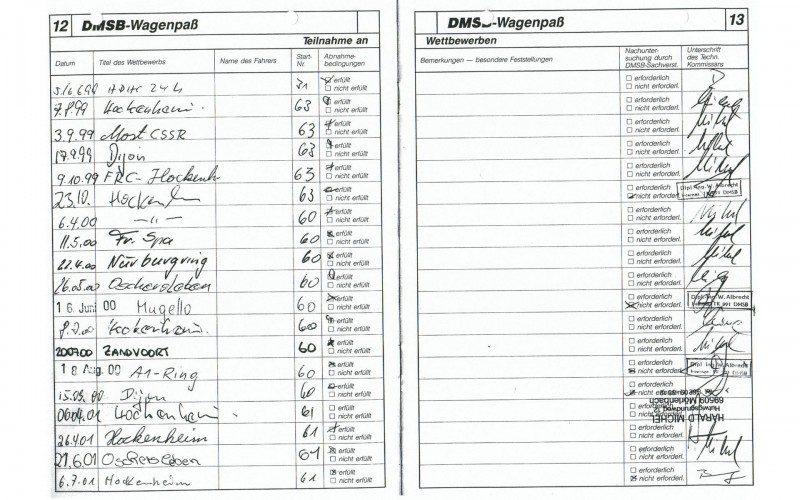 12 DMSB-Wagenpaß
Teilnahme an
Datum Titel des Wettbewerbs Name des Fahrers Start-Nr. Abnahme-bedingungen
ADAC 24h 31 erfüllt
nicht erfüllt
7.8.99 Hockenheim. 63 erfüllt
nicht erfüllt
3.9.99 Most CSSR 63 erfüllt
nicht erfüllt
17.9.99 Dijon 63 erfüllt
nicht erfüllt
9.10.99 FRC-Hockenh 63 erfüllt
nicht erfüllt
23.10. Hockenh 63 erfüllt
nicht erfüllt
6.4.00 — " — 60 erfüllt
nicht erfüllt
11.5.00 Fr. Spa 60 erfüllt
nicht erfüllt
22.4.00 Nürburgring 60 erfüllt
nicht erfüllt
26.05.00 Oschersleben 60 erfüllt
nicht erfüllt
16. Juni 00 Mugello 60 erfüllt
nicht erfüllt
8.7.00 Hockenheim. 60 erfüllt
nicht erfüllt
200700 ZANDVOORT 60 erfüllt
nicht erfüllt
18. Aug. 00 A1-Ring 60 erfüllt
nicht erfüllt
15.09.00 Dijon 60 erfüllt
nicht erfüllt
06.04.01 Hockenheim. 61 erfüllt
nicht erfüllt
26.4.01 Hockenheim 61 erfüllt
nicht erfüllt
21.6.01 Oschersleben 61 erfüllt
nicht erfüllt
6.7.01 Hockenheim 61 erfüllt
nicht erfüllt
DMSB-Wagenpaß 13
Wettbewerben
Bemerkungen — besondere Feststellungen Nachunter-suchung durch DMSB-Sachverst. Unterschrift des Techn. Kommissars
erforderlich
nicht erforderl.
erforderlich
nicht erforderl.
erforderlich
nicht erforderl.
erforderlich
nicht erforderl.
erforderlich
nicht erforderl.
erforderlich Dipl.-Ing. W. Albrecht
nicht erforderl. DMSB
erforderlich
nicht erforderl.
erforderlich
nicht erforderl.
erforderlich
nicht erforderl.
erforderlich
nicht erforderl.
erforderlich Dipl.-Ing. W. Albrecht
nicht erforderl. DMSB
erforderlich
nicht erforderl.
erforderlich
nicht erforderl.
erforderlich Dipl.-Ing. W. Albrecht
nicht erforderl. DMSB
erforderlich
nicht erforderl.
erforderlich 69509 Mörlenbach
nicht erforderl. HARALD MICHEL
erforderlich
nicht erforderl.
erforderlich
nicht erforderl.
erforderlich
nicht erforderl.